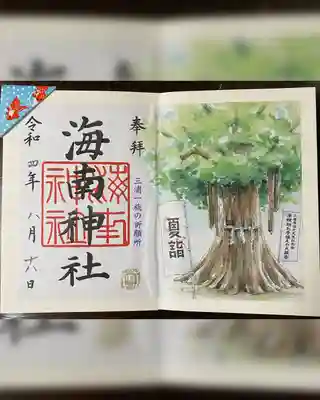 奉拝
三浦一族の祈願所
海南神社
海南神社
令和四年八月十六日
夏詣